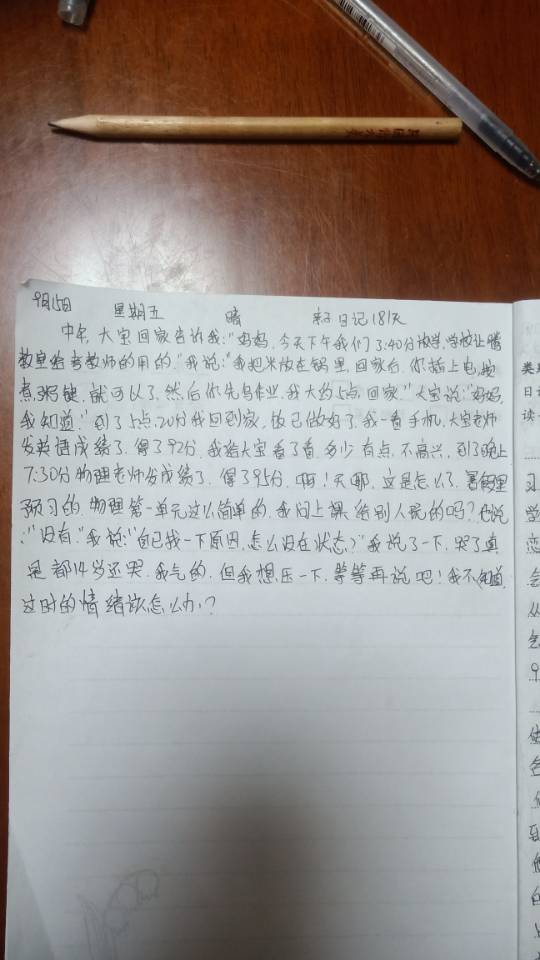 9月15日 星期五 晴 亲子日记181天
中午,大宝回家告诉我:"妈妈,今天下午我们3:40分放学,学校让腾
教室给考教师的用的。"我说:"我把米放在锅里,回家后,你插上电,按
煮粥键,就可以了,然后你先写作业,我大约5点回家。"大宝说:"妈妈,
我知道。"到了5点20分我回到家,饭已做好了,我一看手机,大宝老师
发英语成绩了,得了92分,我给大宝看了看,多少有点不高兴,到了晚上
7:30分物理老师发成绩了,得了95分,啊!天哪,这是怎么了,暑假里
预习的,物理第一单元这么简单的,我问上课给别人说的吗?他说
:"没有。"我说:"自己找一下原因,怎么没在状态?"我说了一下,哭了真
是都14岁还哭,我气的,但我想压一下,等等再说吧!我不知道
这时的情绪该怎么办?
类
日
读
习
学
恋
从
9
自